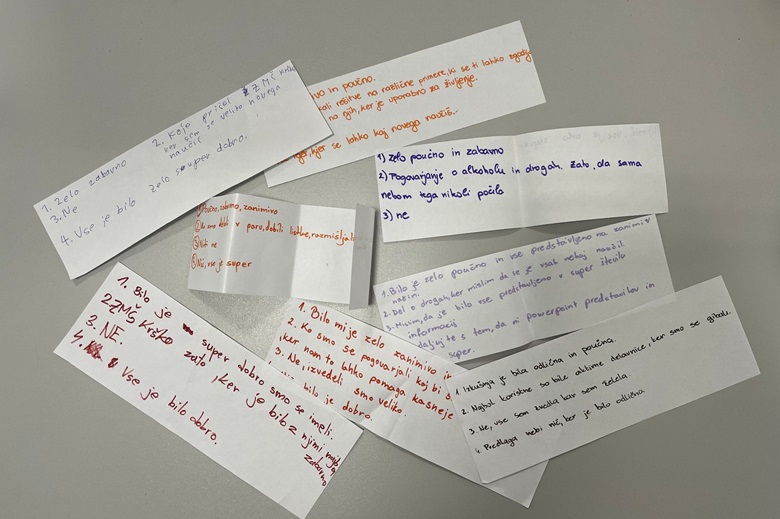 1. Zelo zabavno
2. Kojo prišol ZZMŠ Krško
ker sem se veliko novega
naučil
3. Ne
4. Vse je bilo zelo super dobro.
vo in poučno.
ali rešitve na različne primere, ki se ti lahko zgodijo
na njih, ker je uporabno za življenje.
kjer se lahko kaj novega naučiš.
1) Zelo poučno in zabavno
2) Pogovarjanje o alkoholu in drogah. Zato, da sama
nebom tega nikoli počila
3) ne
zabavno, zanimivo
v paru, dobili listke, razmišljali
vse je super
1. Bilo je zelo poučno in vse predstavljeno na zanimiv
način.
2. Del o drogah, ker mislim da se je vsak nekaj naučil
3. Mislim, da je bilo vse predstavljeno v super število
informacij
daljujte s tem, da ni powerpoint predstavitev in
super.
1. Bilo je super dobro smo se imeli.
2. ZMŠ Krško zato ker je bilo z njimi najbolj
zabavno
3. NE.
4. Vse je bilo dobro.
1. Bilo mi je zelo zanimivo in
2. Ko smo se pogovarjali kaj bi s
ker nam to lahko pomaga kasneje
3. Ne, izvedeli smo veliko.
bilo je dobro.
1. Izkušnja je bila odlična in poučna.
2. Najbolj koristne so bile aktivne delavnice, ker smo se gibali.
3. Ne, vse sem zvedla kar sem želela.
4. Predlaga nebi nič, ker je bilo odlično